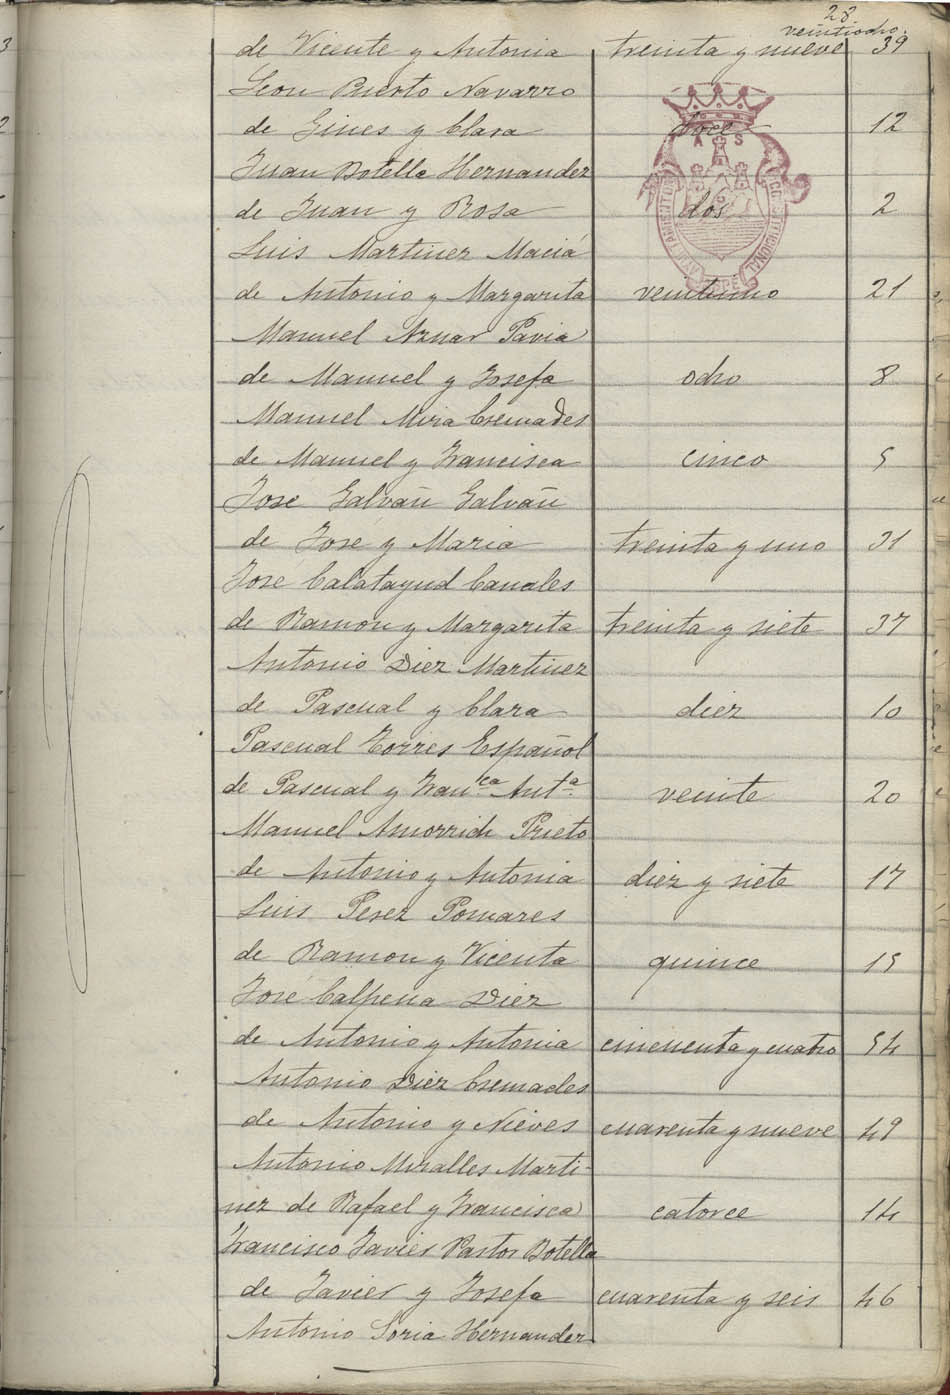 28
veintiocho.
de Vicente y Antonia treinta y nueve 39
Leon Puerto Navarro
de Gines y Clara doce 12
Juan Botella Hernandez
de Juan y Rosa dos 2
Luis Martinez Maciá
de Antonio y Margarita veintiuno 21
Manuel Aznar Pavia
de Manuel y Josefa ocho 8
Manuel Mira Cremades
de Manuel y Francisca cinco 5
José Galvañ Galvañ
de José y Maria treinta y uno 31
José Calatayud Canales
de Ramon y Margarita treinta y siete 37
Antonio Diez Martinez
de Pascual y Clara diez 10
Pascual Torres Español
de Pascual y Fran.ca Ant.a veinte 20
Manuel Amorrich Prieto
de Antonio y Antonia diez y siete 17
Luis Perez Pomares
de Ramon y Vicenta quince 15
José Calpena Diez
de Antonio y Antonia cincuenta y cuatro 54
Antonio Diez Cremades
de Antonio y Nieves cuarenta y nueve 49
Antonio Miralles Marti-
nez de Rafael y Francisca catorce 14
Francisco Javier Pastor Botella
de Javier y Josefa cuarenta y seis 46
Antonio Soria Hernandez